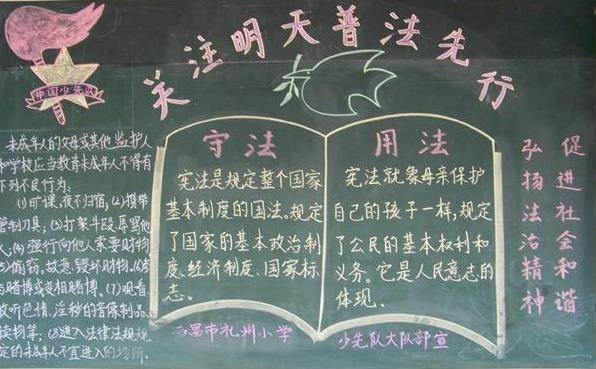 关注明天普法先行
中国少先队
未成年人的父母或其他监护人
和学校应当教育未成年人不得有
下列不良行为:
(1)旷课、夜不归宿,(2)携带
管制刀具;(3)打架斗殴、辱骂他
人,(4)强行向他人索要财物
(5)偷窃、故意毁坏财物。(6)参
与赌博或变相赌博,(7)观看
收听色情、淫秽的音像制品、
读物等;(8)进入法律法规规
定的未成年人不宜进入的场所.
守法
宪法是规定整个国家
基本制度的国法。规定
了国家的基本政治制
度、经济制度、国家标
志。
西昌市礼州小学
用法
宪法就象母亲保护
自己的孩子一样,规定
了公民的基本权利和
义务。它是人民意志的
体现.
少先队大队部宣
弘扬法治精神
促进社会和谐